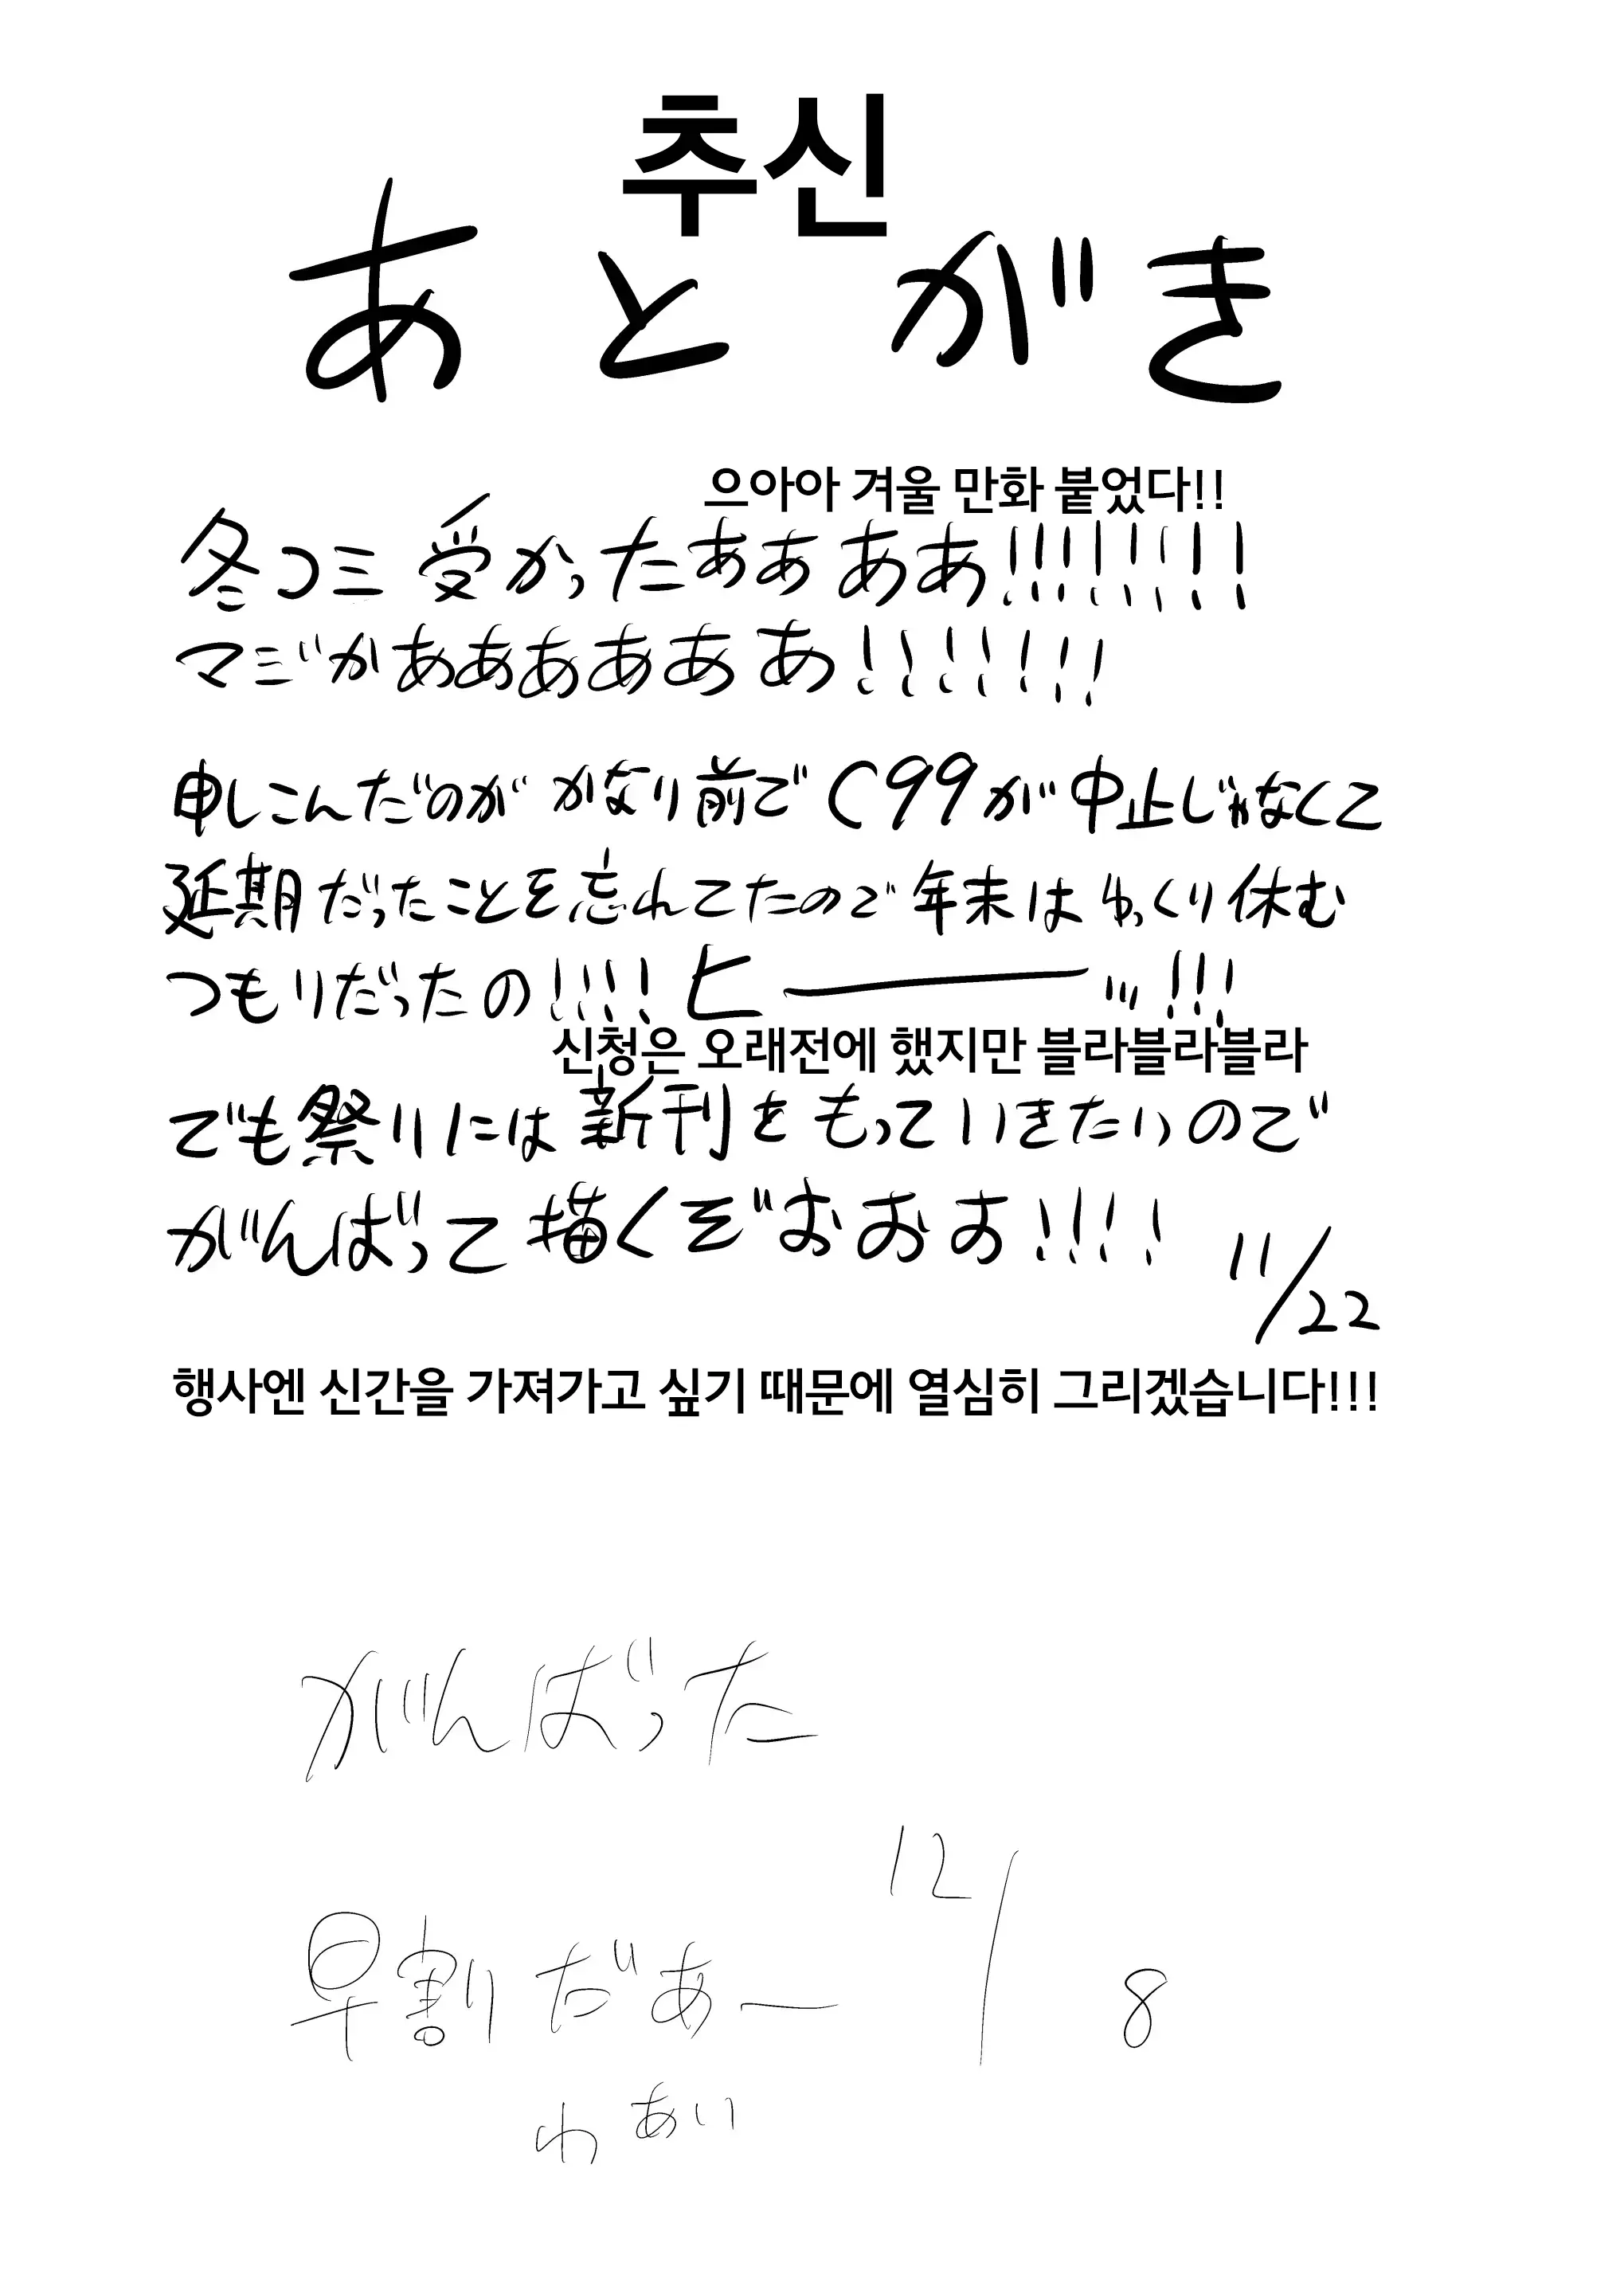 추신
あとがき
으아아 겨울 만화 붙었다!!
冬コミ受かったああああ!!!!!!!!
マジかああああああ!!!!!!!
申しこんだのがかなり前でC99が中止じゃなくて
延期だったことを忘れてたので年末はゆっくり休む
つもりだったの!!!!ヒーーッ!!!
신청은 오래전에 했지만 블라블라블라
でも祭りには新刊をもっていきたいので
がんばって描くぞおおお!!!!
11/22
행사엔 신간을 가져가고 싶기 때문에 열심히 그리겠습니다!!!
がんばった
12/8
早割だあー
わあい